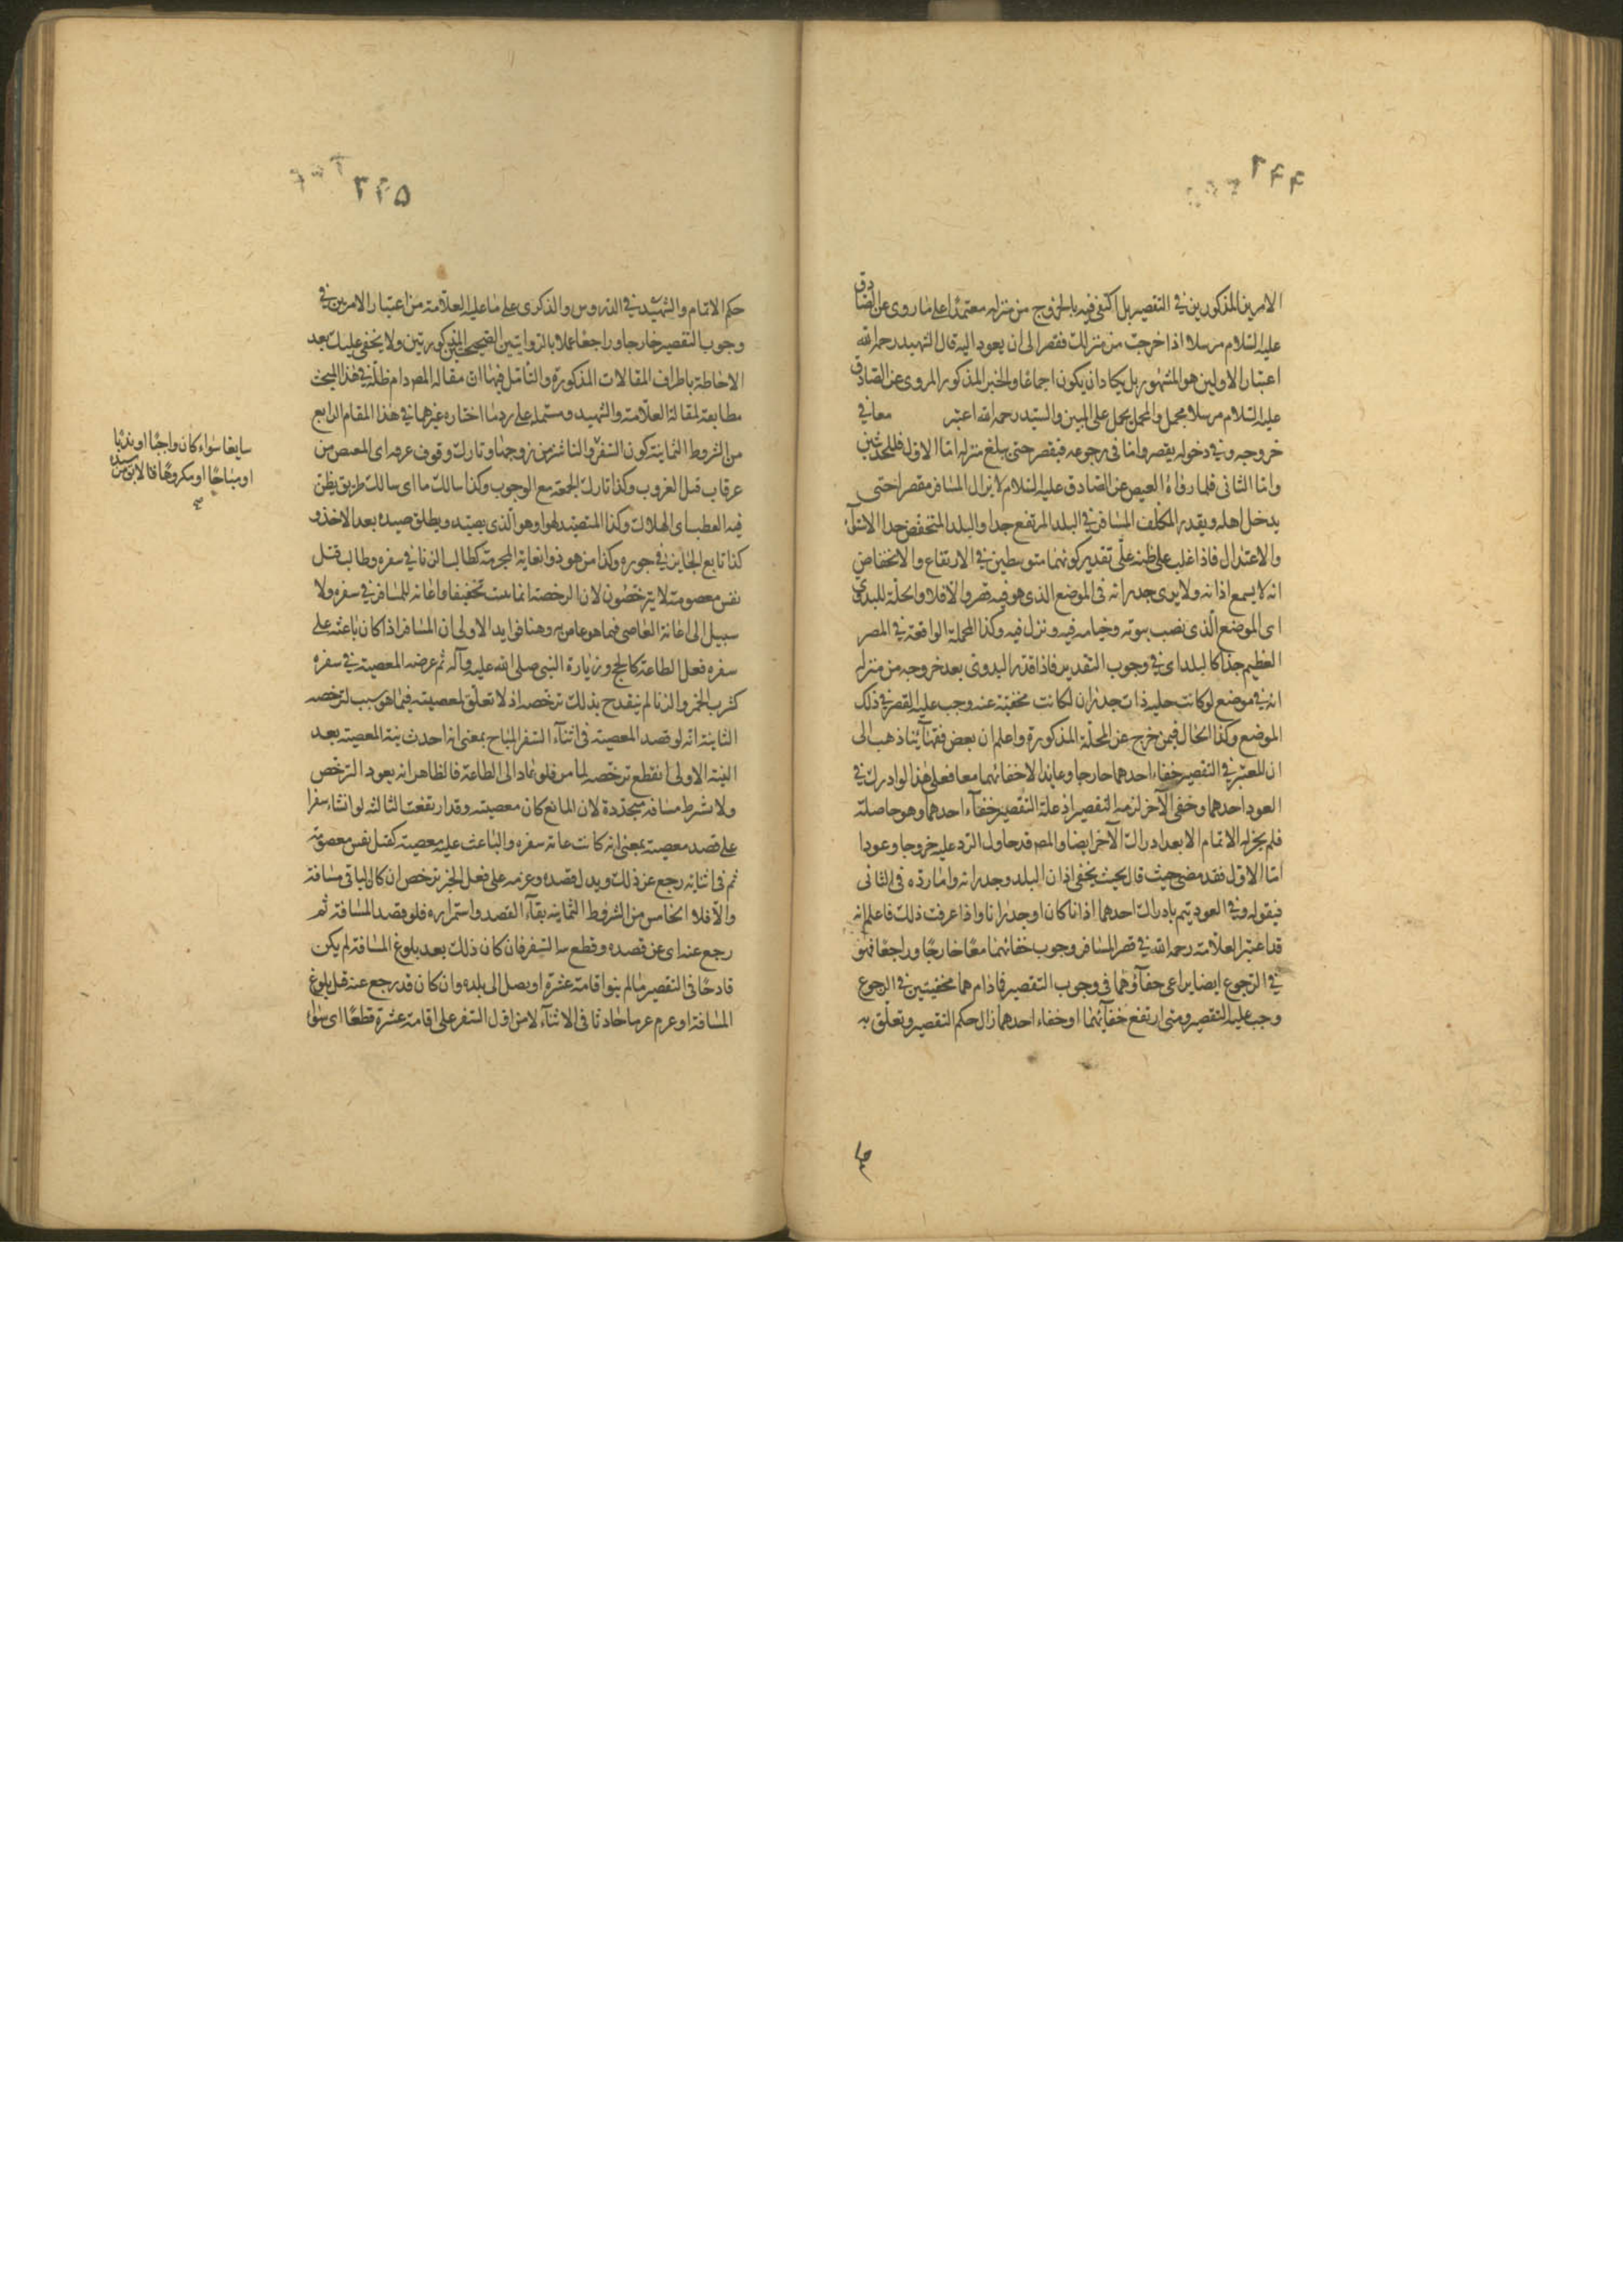 ٢٤٤
الامرين المذكورين في التقصير بل اكتفى فيه بالخروج من منزله معتمدا على ما روى عن الصادق
عليه السلام مرسلا اذا خرجت من منزلك فقصر الى ان يعود اليه قال الشهيد رحمه الله
اعتبار الاولين هو المشهور بل يكاد ان يكون اجماعا والخبر المذكور المروى عن الصادق
عليه السلام مرسلا مجمل والمجمل يحمل على المبين والسيد رحمه الله اعتبر معا في
خروجه وفي دخوله يقصر واما في رجوعه فيقصر حتى يبلغ منزله اما الاول فللحديثين
واما الثاني فلما رواه العيص عن الصادق عليه السلام لا يزال المسافر مقصرا حتى
يدخل اهله ويقدر المكلف المسافر في البلد المرتفع جدا والبلد المنخفض جدا الاستواء
والاعتدال فاذا غلب على ظنه على تقدير كونهما متوسطين في الارتفاع والانخفاض
انه لا يسمع اذانه ولا يرى جدرانه في الموضع الذي هو فيه قصر والا فلا والحلة للبدوي
اي الموضع الذي نصب بيوته وخيامه فيه ونزل فيه وكذا المحلة الواقعة في المصر
العظيم جدا كالبلد اي في وجوب التقدير فاذا قدر البدوي بعد خروجه من منزله
انه في موضع لو كانت حليه ذات جدران لكانت مخفية عنه وجب عليه القصر في ذلك
الموضع وكذا الحال فيمن خرج عن المحلة المذكورة واعلم ان بعض فقهائنا ذهب الى
ان المعتبر في التقصير خفاء احدهما خارجا وعايدا لا خفائهما معا فعلى هذا لو ادرك في
العود احدهما وخفى الآخر لزمه التقصير اذ علة التقصير خفاء احدهما وهو حاصلة
فلم يجز له الاتمام الا بعد ادراك الآخر ايضا والمص قد حاول الرد عليه خروجا وعودا
اما الاول فقد مضى حيث قال بحيث يخفى اذان البلد وجدرانه واما رده في الثاني
فبقوله وفي العود يتم بادراك احدهما اذانا كان او جدرانا واذا عرفت ذلك فاعلم انه
قد اعتبر العلامة رحمه الله في قصر المسافر وجوب خفائهما معا خارجا وراجعا فهو
في الرجوع ايضا يراعى خفاؤهما في وجوب التقصير فاذام هما مخفيتين في الرجوع
وجب عليه التقصير ومتى ارتفع خفائهما او خفاء احدهما زال حكم التقصير وتعلق به
٢٤٥
حكم الاتمام والشهيد في الدروس والذكرى على ما عليه العلامة من اعتبار الامرين في
وجوب التقصير خارجا وراجعا عملا بالروايتين الصحيحتين المذكورتين ولا يخفى عليك بعد
الاحاطة باطراف المقالات المذكورة والتأمل فيها ان مقالة المص دام ظله في هذا المبحث
مطابقة لمقالة العلامة والشهيد ومشتملة على رد ما اختاره غيرهما في هذا المقام الرابع
من الشروط الثمانية كون السفر والناشز من زوجها وتارك وقوف عرفه اي المعصر من
عرفات قبل الغروب وكذا تارك الجمعة مع الوجوب وكذا سالك ما اي سالك طريق يظن
فيه العطب اي الهلاك وكذا المتصيد لهوا وهو الذي يصيده ويطلق صيده بعد الاخذ و
كذا تابع الجاير في جوره وكذا من هو ذو انعاية المحرمة كطالب الزنا في سفره وطالب قتل
نفس معصومة لا يترخصون لان الرخصة انما تثبت تخفيفا واعانة للمسافر في سفره ولا
سبيل الى اعانة العاصي فيما هو عاص به وهنا فوايد الاولى ان المسافر اذا كان باعثه على
سفره فعل الطاعة كالحج وزيارة النبي صلى الله عليه وآله ثم عرضه المعصية في سفره
كشرب الخمر والزنا لم ينقدح بذلك ترخصه اذ لا تعلق لمعصيته فيما هو سبب لترخصه
الثانية انه لو قصد المعصية في اثناء السفر المباح بمعنى انه احدث نية المعصية بعد
النية الاولى انقطع ترخصه لما مر فلو عاد الى الطاعة فالظاهر انه يعود الترخص
ولا يشرط مسافة متجددة لان المانع كان معصيته وقد ارتفعت الثالثة لو انشاء سفرا
على قصد معصية بمعنى انه كانت غاية سفره والباعث عليه معصية كقتل نفس معصومة
ثم في اثنائه رجع عن ذلك وبدل قصده وعزمه على فعل الخير ترخص ان كان الباقي مسافة
والا فلا الخامس من الشروط الثمانية بقاء القصد واستمراره فلو قصد المسافة ثم
رجع عنه اي عن قصده وقطع السفر فان كان ذلك بعد بلوغ المسافة لم يكن
قادحا في التقصير ما لم ينوا اقامة عشرة او يصل الى بلده وان كان قد رجع عنه قبل بلوغ
المسافة او عزم عزما حادثا في الاثناء لا من اول السفر على اقامة عشرة قطعا اي سواء
سايغا سواء كان واجبا او ندبا
او مباحا او مكروها فالابق من سيده